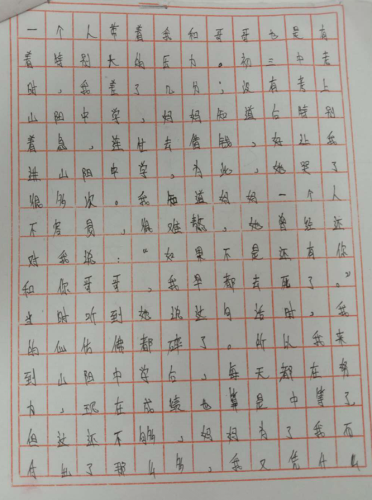 一个人带着我和哥哥也是有
着特别大的压力。初三中考
时，我差了几分；没有考上
山阴中学，妈妈知道后特别
着急，连忙去借钱，好让我
进山阴中学，为此，她哭了
很多次。我知道妈妈一个人
不容易，很难熬，她曾经还
对我说：“如果不是还有你
和你哥哥，我早都去死了。”
当时听到她说这句话时，我
的心仿佛都碎了。所以我来
到山阴中学后，每天都在努
力，现在成绩也算是中等了
但这还不够，妈妈为了我而
付出了那么多，我又凭什么